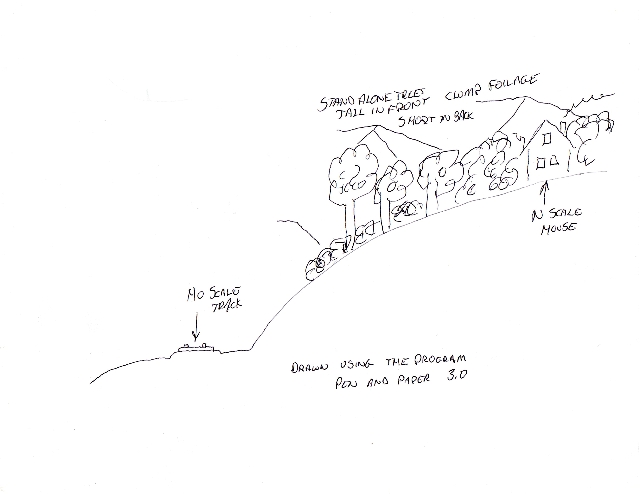 STAND ALONE TREES
TALL IN FRONT
SHORT IN BACK
CLUMP FOLIAGE
N SCALE
HOUSE
HO SCALE
TRACK
DRAWN USING THE PROGRAM
PEN AND PAPER 3.0